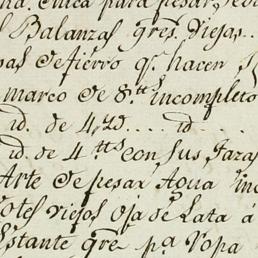 chica para pesar
Balanzas gres. viejas..
de fierro q.e hacen
marco de 8.tt incompleto
id. de 4 id.... id...
id. de 4 tts con sus Tazas
Arte de pesar Agua inc
Votes viejos oja de Lata á
Estante gre pa. Ropa